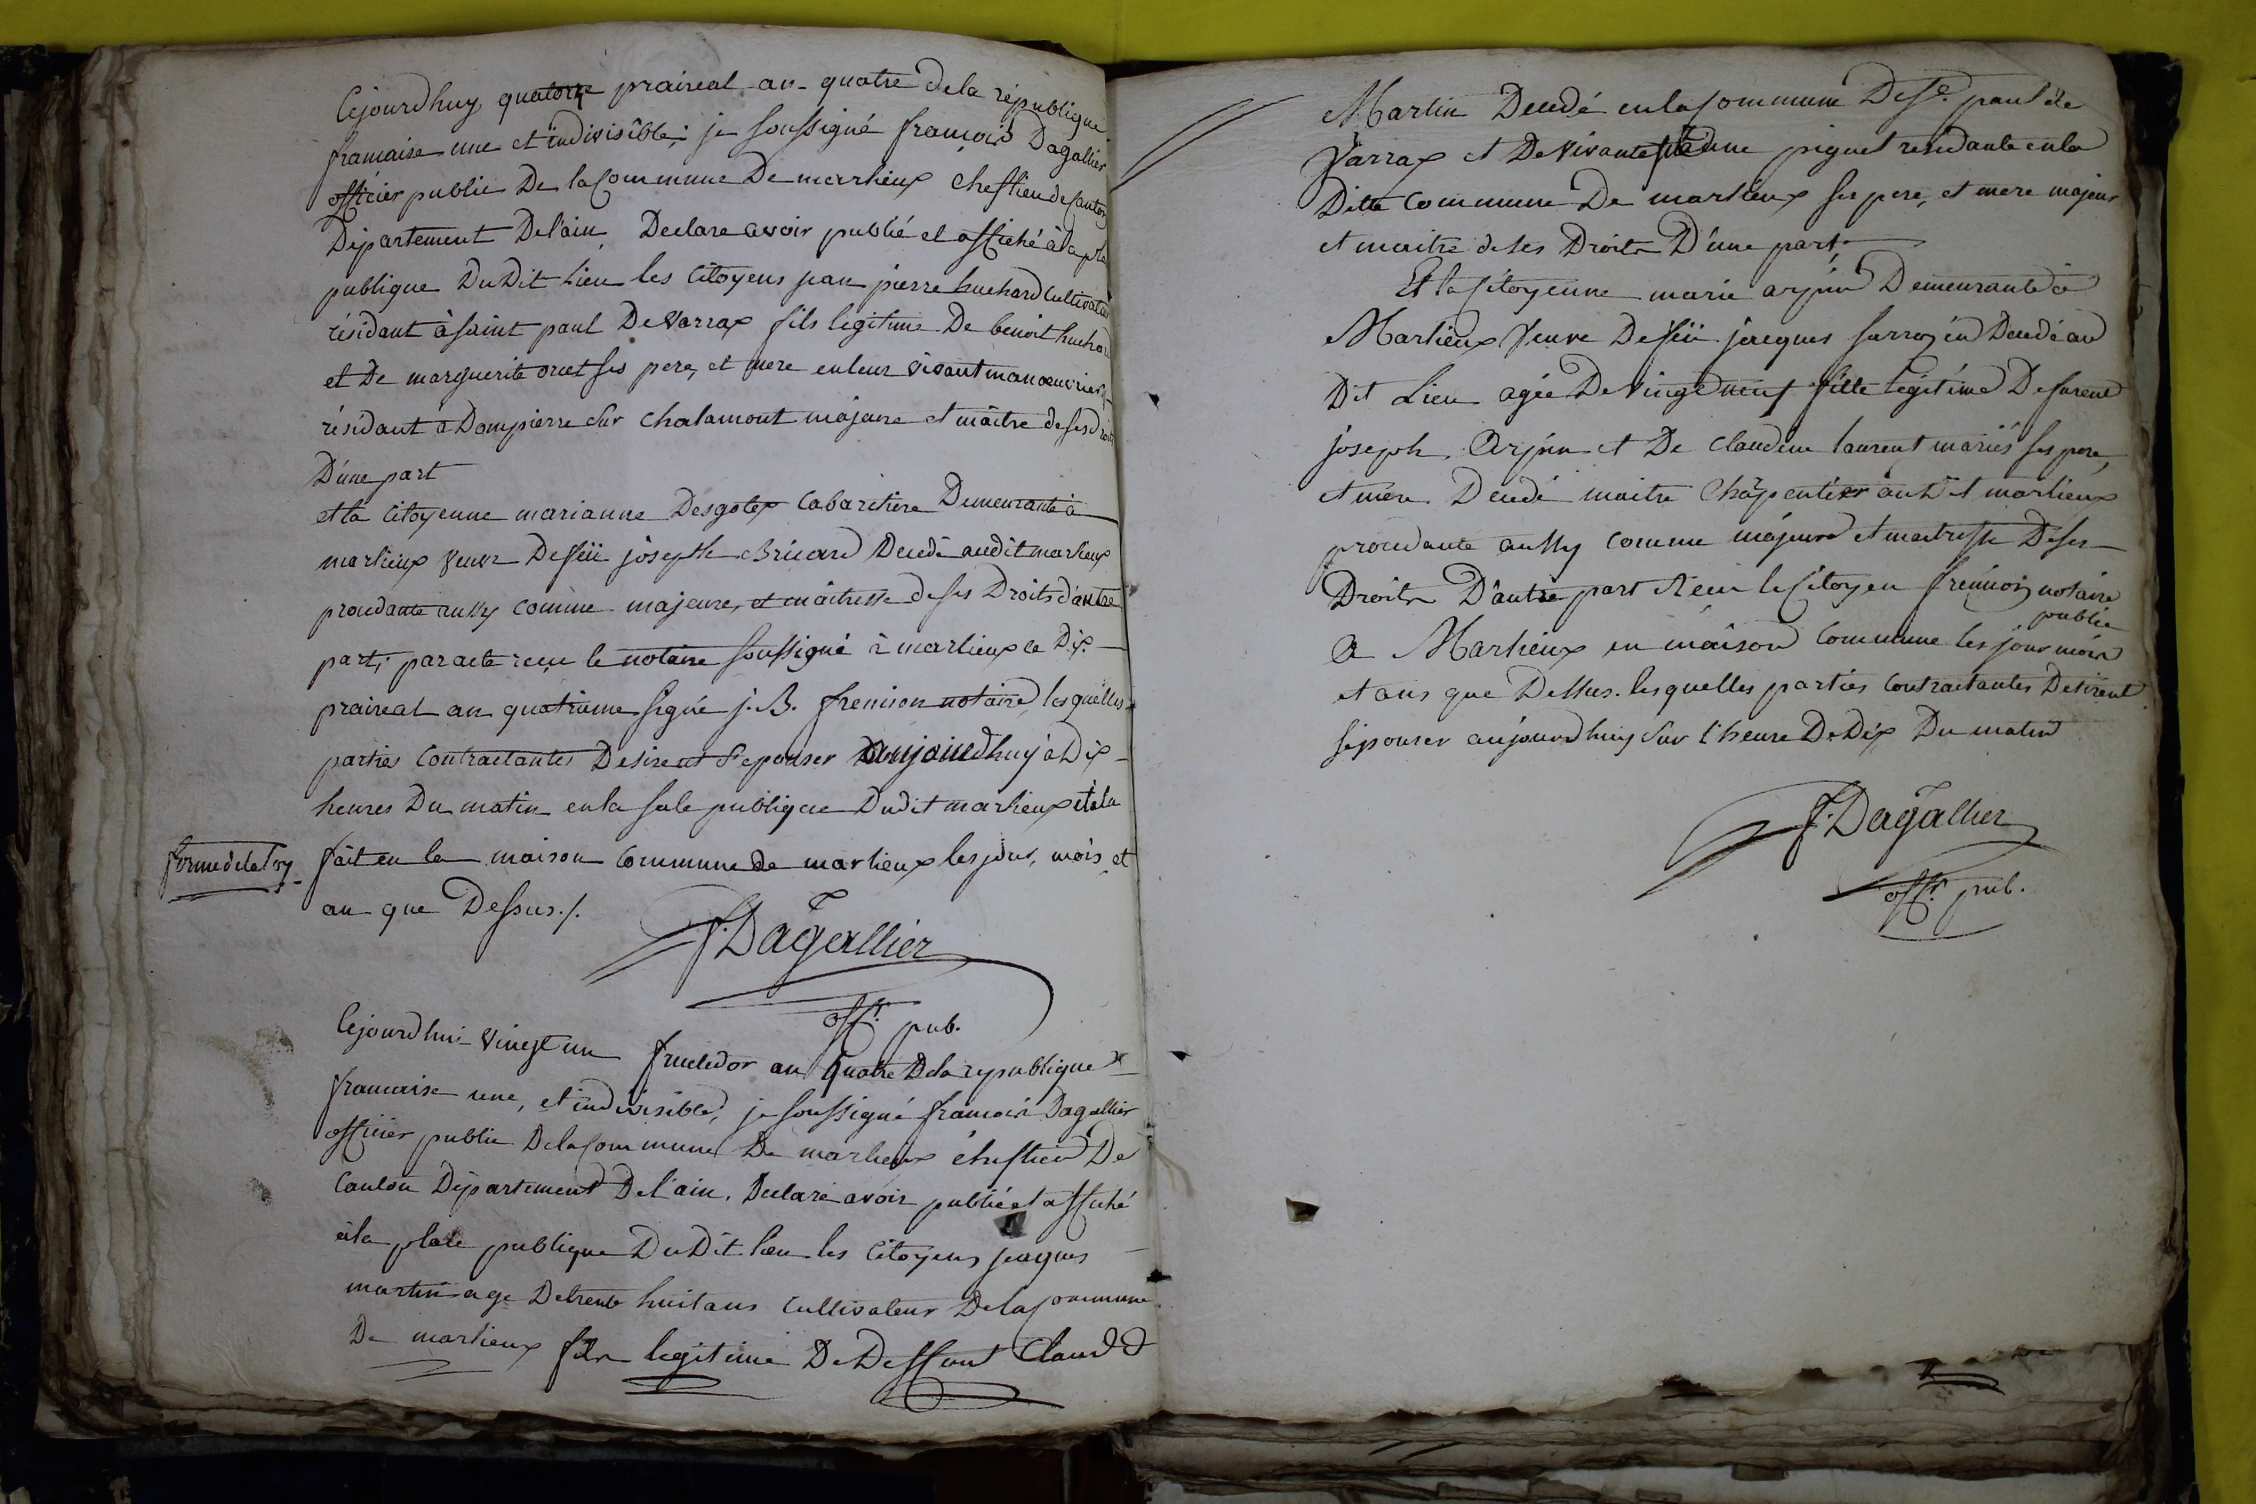 Cejourdhuy quatorze praireal an quatre dela république
francaise une et indivisible; je soussigné françois Dagallier
officier public De la Commune De marlieux cheflieu de Canton
Département Delain, Declare avoir publié et affiché à la pla
publique DuDit Lieu les Citoyens jean pierre huchard Cultivateur
résidant à saint paul DeVarrax fils legitime De benoit huchard
et De marguerite oret ses pere, et mere enleur vivant manoeuvrier
résidant à Dompierre sur Chalamont majeure et maître deses droits
D'une part
et la Citoyenne marianne Desgotex Cabaretière Demeurante à
marlieux veuve Defeü joseph Bricard Decedé audit marlieux
procedante aussy comme majeure, et maitresse deses Droits d'autre
part, par acte reçu le notaire soussigné à marlieux le Dix
praireal an quatrieme signé j. B. fremion notaire, lesquelles
parties Contractantes Desirent s'epouser aujourdhuy à Dix
heures Du matin enla sale publique Dudit marlieux et à la
forme dela loy
fait en la maison Commune de marlieux les jour, mois, et
an que Dessus ./.
f. Dagallier
offr. pub.
Cejourdhui vingt un fructidor an quatre Dela republique
francaise une, et indivisible, je soussigné francois Dagallier
officier public Dela Commune De marlieux cheflieu De
Canton Département De l'ain, Declare avoir publié et affiché
à la place publique DuDit lieu les Citoyens jacques
martin age Detrente huit ans Cultivateur Dela Commune
De marlieux fils legitime De Deffunt Claude
Martin Decedé en la Commune De St. paul de
Varrax et De vivante piquet residante en la
Ditte Commune De marlieux ses pere, et mere majeur
et maitre deses Droits D'une part.
Et la Citoyenne marie arpin Demeurante à
Marlieux veuve Defeü jacques Decedé au
Dit Lieu agée De vingt neuf fille legitime
joseph Arpin et De Claudine laurent mariés ses pere,
et mere Decedé maitre Charpentier auDit marlieux
procedante aussy comme majeure et maitresse Deses
Droits D'autre part Reçu le Citoyen fremion notaire
public
A Marlieux en maison Commune les jour mois
et ans que Dessus. lesquelles parties Contractantes Desirent
s'epouser aujourdhuy sur l'heure DeDix Du matin
f. Dagallier
offr. pub.